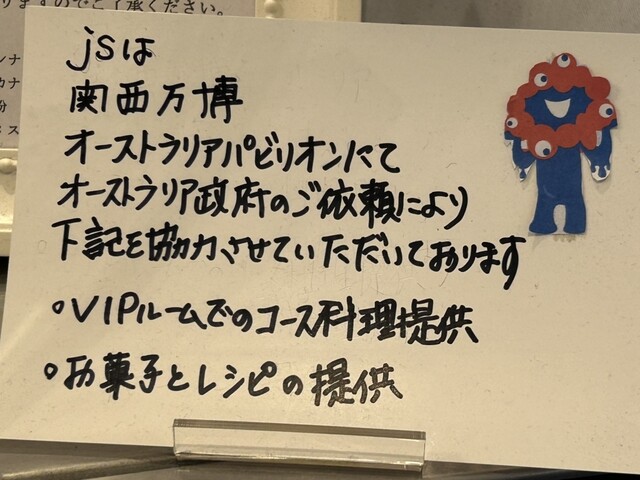 りますのでご了承ください。
jsは
関西万博
オーストラリアパビリオンにて
オーストラリア政府のご依頼により
下記を協力させていただいております
・VIPルームでのコース料理提供
・お菓子とレシピの提供